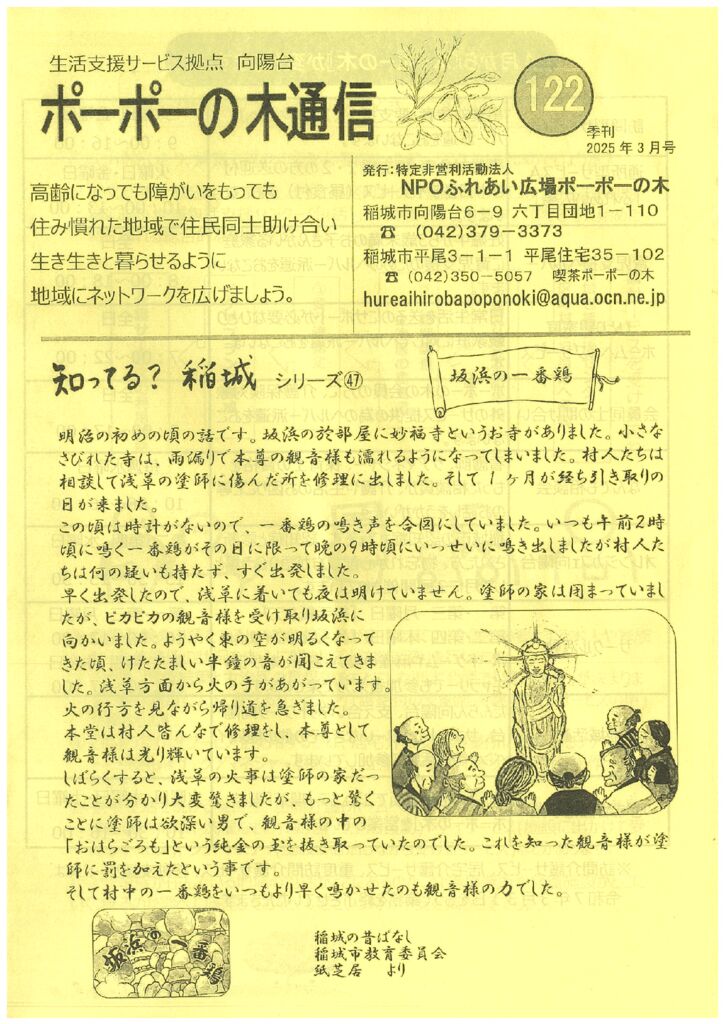 生活支援サービス拠点 向陽台
ポーポーの木通信
122
季刊
2025年3月号
高齢になっても障がいをもっても
住み慣れた地域で住民同士助け合い
生き生きと暮らせるように
地域にネットワークを広げましょう。
発行:特定非営利活動法人
NPOふれあい広場ポーポーの木
稲城市向陽台6-9 六丁目団地1-110
☎ (042)379-3373
稲城市平尾3-1-1 平尾住宅35-102
☎ (042)350-5057 喫茶ポーポーの木
hureaihirobapoponoki@aqua.ocn.ne.jp
知ってる? 稲城 シリーズ㊼
坂浜の一番鶏
明治の初めの頃の話です。坂浜の於部屋に妙福寺というお寺がありました。小さな
さびれた寺は、雨漏りで本尊の観音様も濡れるようになってしまいました。村人たちは
相談して浅草の塗師に傷んだ所を修理に出しました。そして1ヶ月が経ち引き取りの
日が来ました。
この頃は時計がないので、一番鶏の鳴き声を合図にしていました。いつも午前2時
頃に鳴く一番鶏がその日に限って晩の9時頃にいっせいに鳴き出しましたが村人た
ちは何の疑いも持たず、すぐ出発しました。
早く出発したので、浅草に着いても夜は明けていません。塗師の家は閉まっていまし
たが、ピカピカの観音様を受け取り坂浜に
向かいました。ようやく東の空が明るくなって
きた頃、けたたましい半鐘の音が聞こえてきま
した。浅草方面から火の手があがっています。
火の行方を見ながら帰り道を急ぎました。
本堂は村人皆んなで修理をし、本尊として
観音様は光り輝いています。
しばらくすると、浅草の火事は塗師の家だっ
たことが分かり大変驚きましたが、もっと驚く
ことに塗師は欲深い男で、観音様の中の
「おはらごもる」という純金の玉を抜き取っていたのでした。これを知った観音様が塗
師に罰を加えたという事です。
そして村中の一番鶏をいつもより早く鳴かせたのも観音様の力でした。
坂浜の一番鶏
稲城の昔ばなし
稲城市教育委員会
紙芝居 より